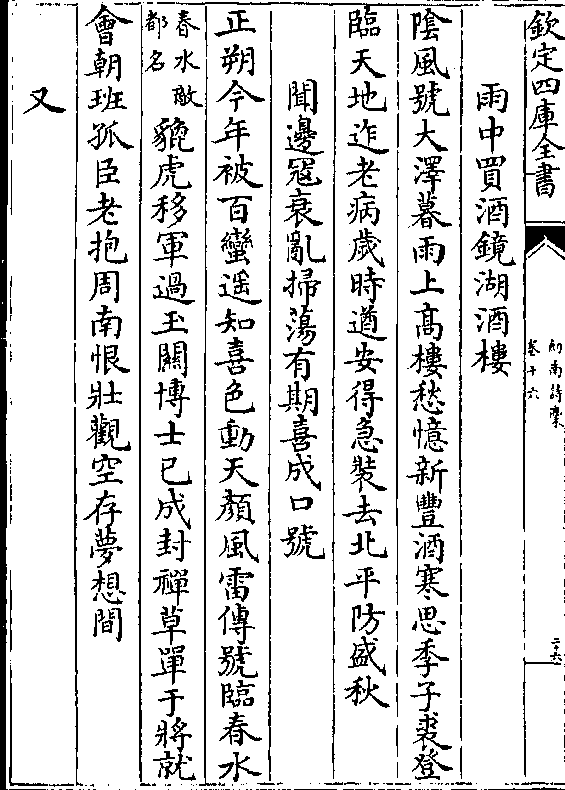 欽定四庫全書
劍南詩槀
卷十六
二十六
雨中買酒鏡湖酒樓
陰風號大澤暮雨上髙樓愁憶新豐酒寒思季子裘登
臨天地迮老病歲時遒安得急裝去北平防盛秋
聞邊冦衰亂掃蕩有期喜成口號
正朔今年被百蠻遥知喜色動天顔風雷傳號臨春水
春水敵
都名
貔虎移軍過玉關博士已成封禪草單于將就
會朝班孤臣老抱周南恨壯觀空存夢想間
又